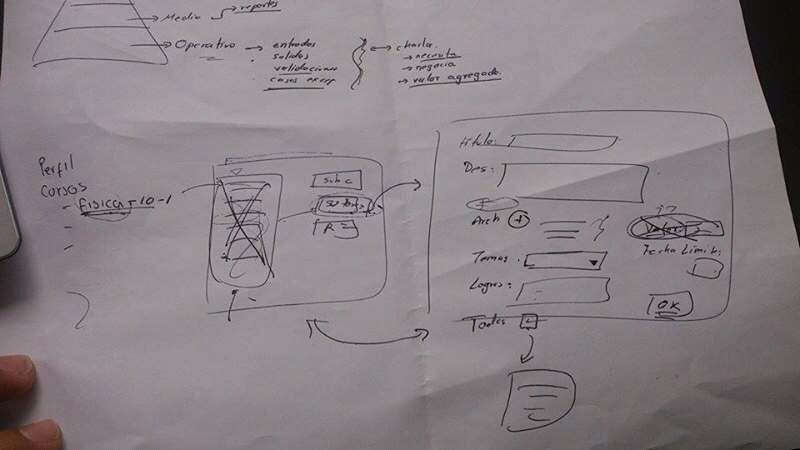 Medio → reportes
Operativo → entradas
salidas
validaciones
casos excep
charla.
→ necesita
→ negocia
→ valor agregado.
Perfil
Cursos
- FISICA 10-1
-
-
sub c
titulo:
Des:
Arch +
Temas.
Fecha Limit.
Logros:
OK
Todos